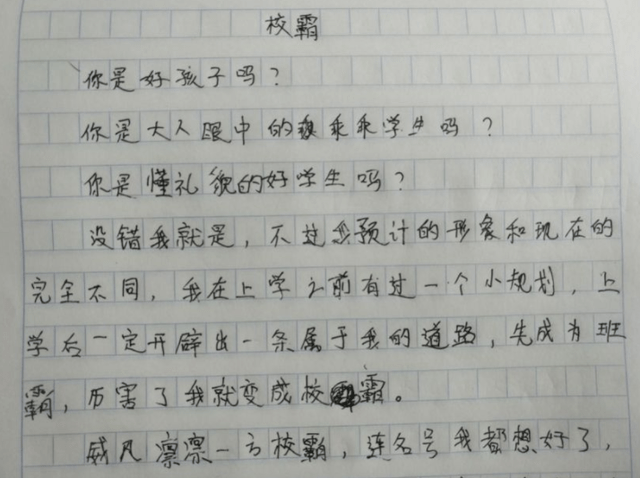 校霸
你是好孩子吗？
你是大人眼中的乖乖学生吗？
你是懂礼貌的好学生吗？
没错我就是，不过我预计的形象和现在的
完全不同，我在上学之前有过一个小规划，上
学后一定开辟出一条属于我的道路，先成为班
霸，厉害了我就变成校霸。
威风凛凛一方校霸，连名号我都想好了，